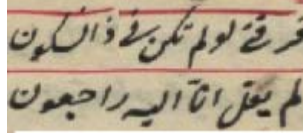 فرقتي لولم تكن في ذا السكون
لم يقل انا اليه راجعون